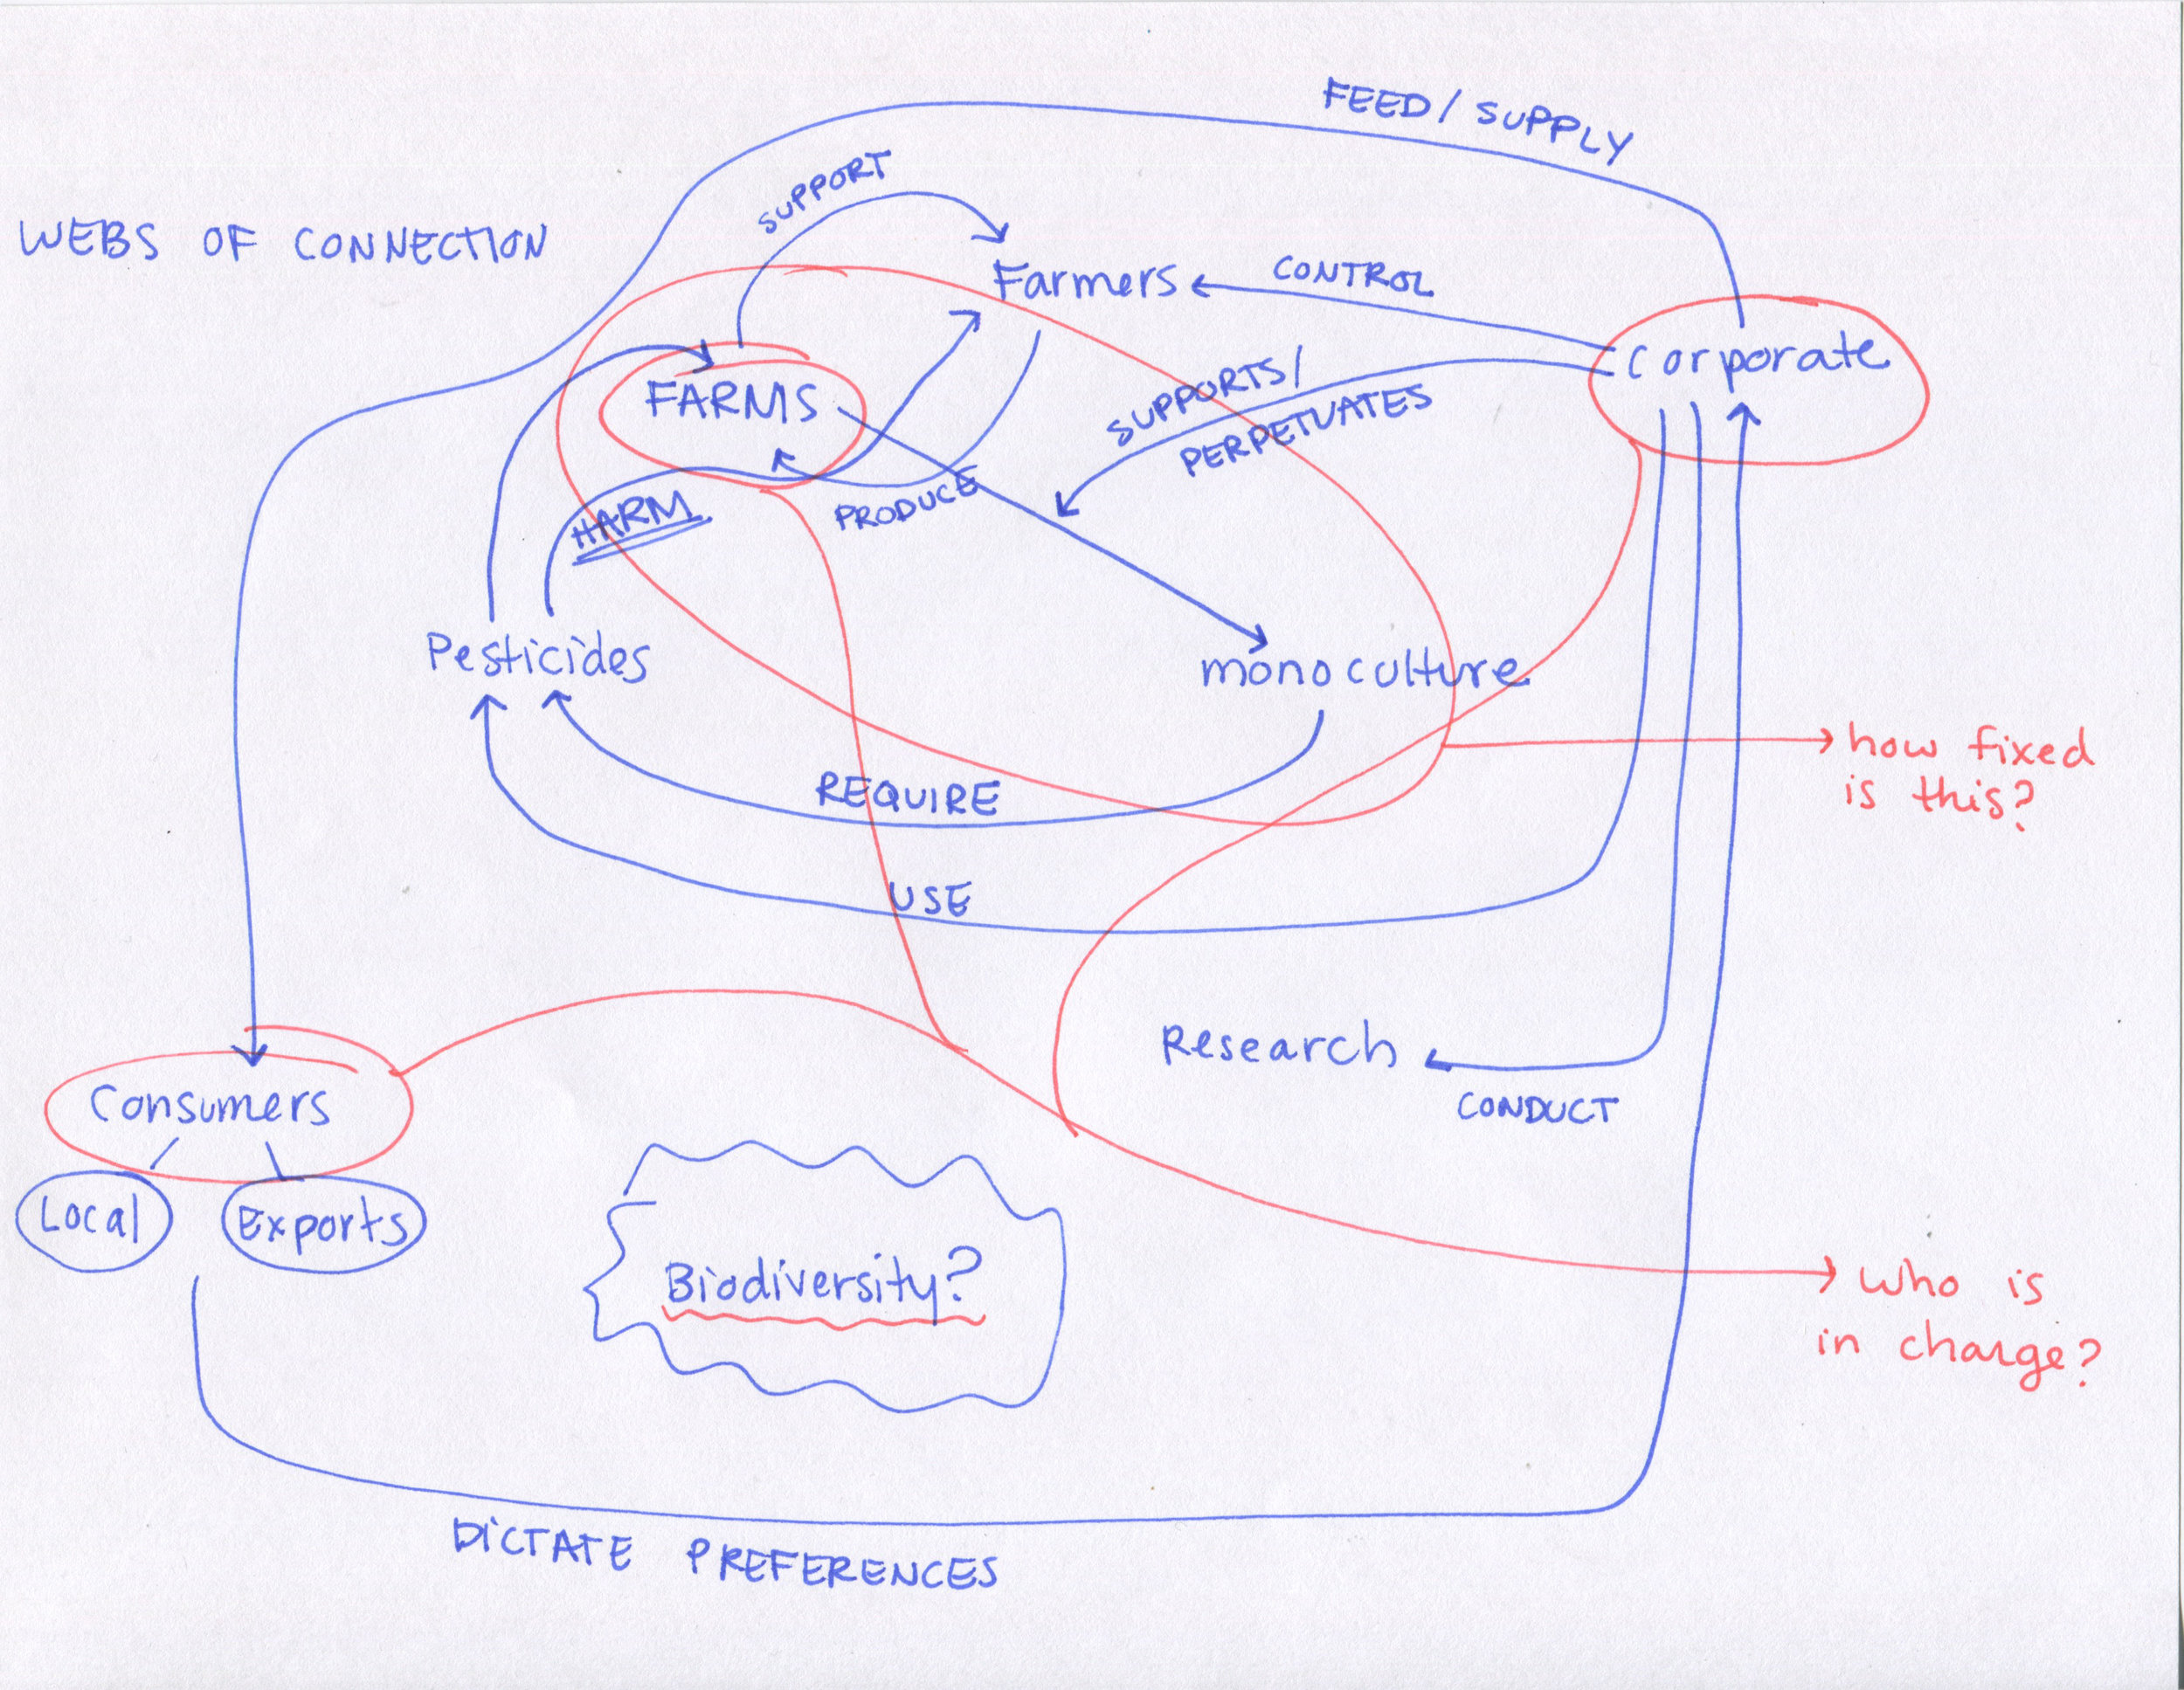 FEED/SUPPLY
SUPPORT
WEBS OF CONNECTION
Farmers
CONTROL
Corporate
FARMS
SUPPORTS/
PERPETUATES
PRODUCE
HARM
Pesticides
monoculture
how fixed
is this?
REQUIRE
USE
Research
CONDUCT
Consumers
Local
Exports
Biodiversity?
Who is
in charge?
DICTATE PREFERENCES